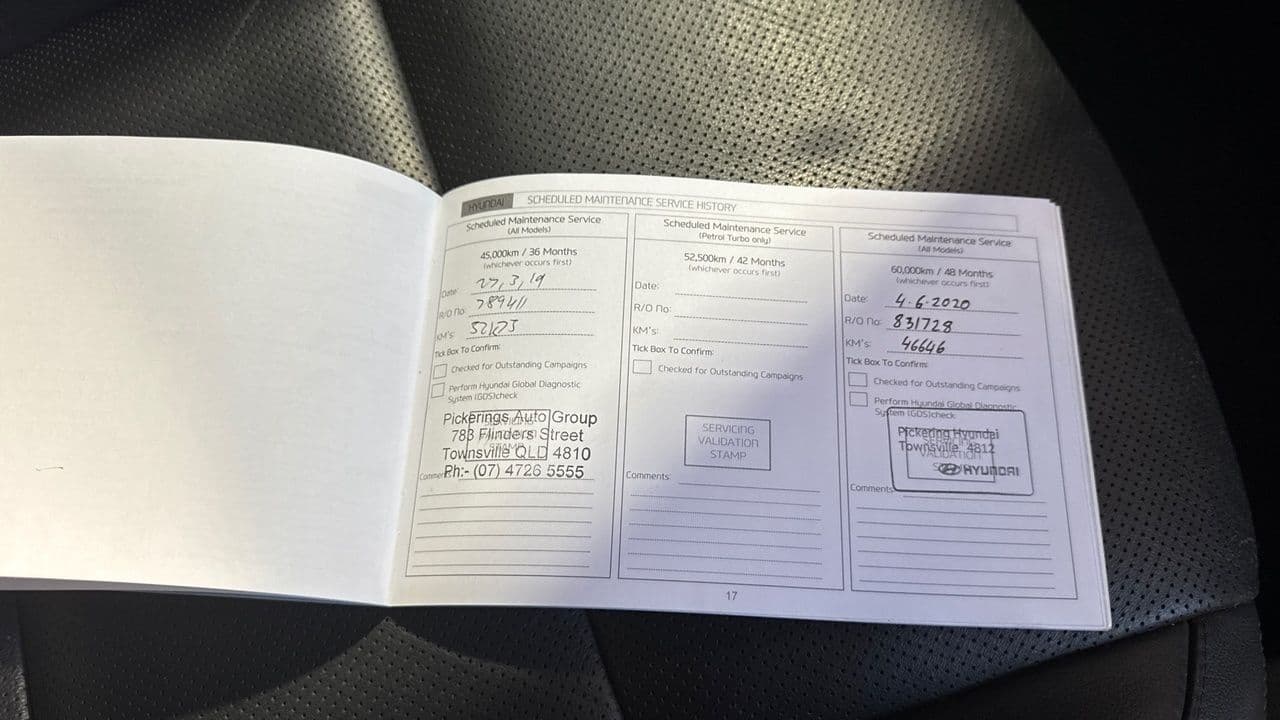 HYUNDAI SCHEDULED MAINTENANCE SERVICE HISTORY
Scheduled Maintenance Service
(All Models)
45,000km / 36 Months
(whichever occurs first)
Date: 27, 3, 19
R/O no: 789411
KM's:
Tick Box To Confirm:
Checked for Outstanding Campaigns
Perform Hyundai Global Diagnostic
System (GDS)check
Pickerings Auto Group
783 Flinders Street
Townsville QLD 4810
Ph:- (07) 4726 5555
Scheduled Maintenance Service
(Petrol Turbo only)
52,500km / 42 Months
(whichever occurs first)
Date:
R/O no:
KM's:
Tick Box To Confirm:
Checked for Outstanding Campaigns
SERVICING
VALIDATION
STAMP
Comments:
Scheduled Maintenance Service
(All Models)
60,000km / 48 Months
(whichever occurs first)
Date: 4-6-2020
R/O no: 831728
KM's: 46646
Tick Box To Confirm:
Checked for Outstanding Campaigns
Perform Hyundai Global Diagnostic
System (GDS)check
Pickering Hyundai
Townsville 4812
VALIDATION
HYUNDAI
Comments:
17